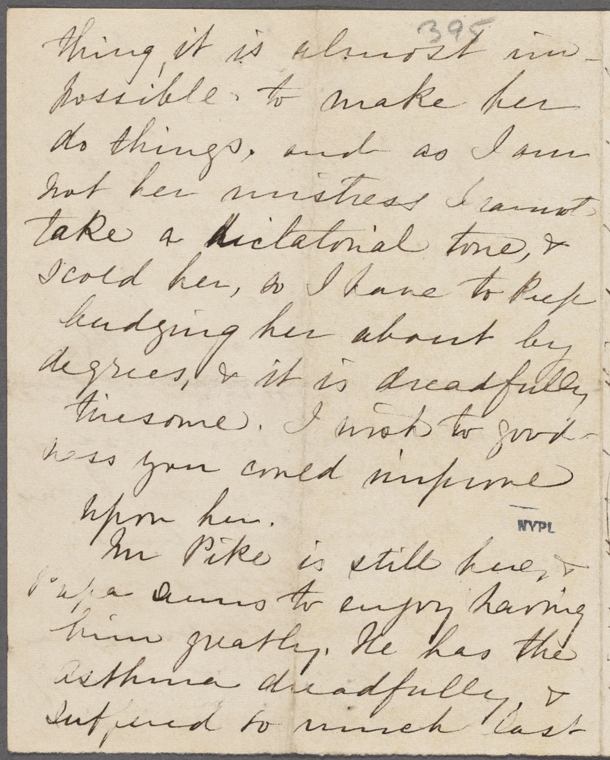 395
thing, it is almost im-
possible to make her
do things, and as I am
not her mistress I cannot
take a dictatorial tone, &
scold her, so I have to keep
budging her about by
degrees, & it is dreadfully
tiresome. I wish to good-
ness you could improve
upon her.
NYPL
Mr Pike is still here, &
Papa seems to enjoy having
him greatly. He has the
asthma dreadfully, &
suffered so much last